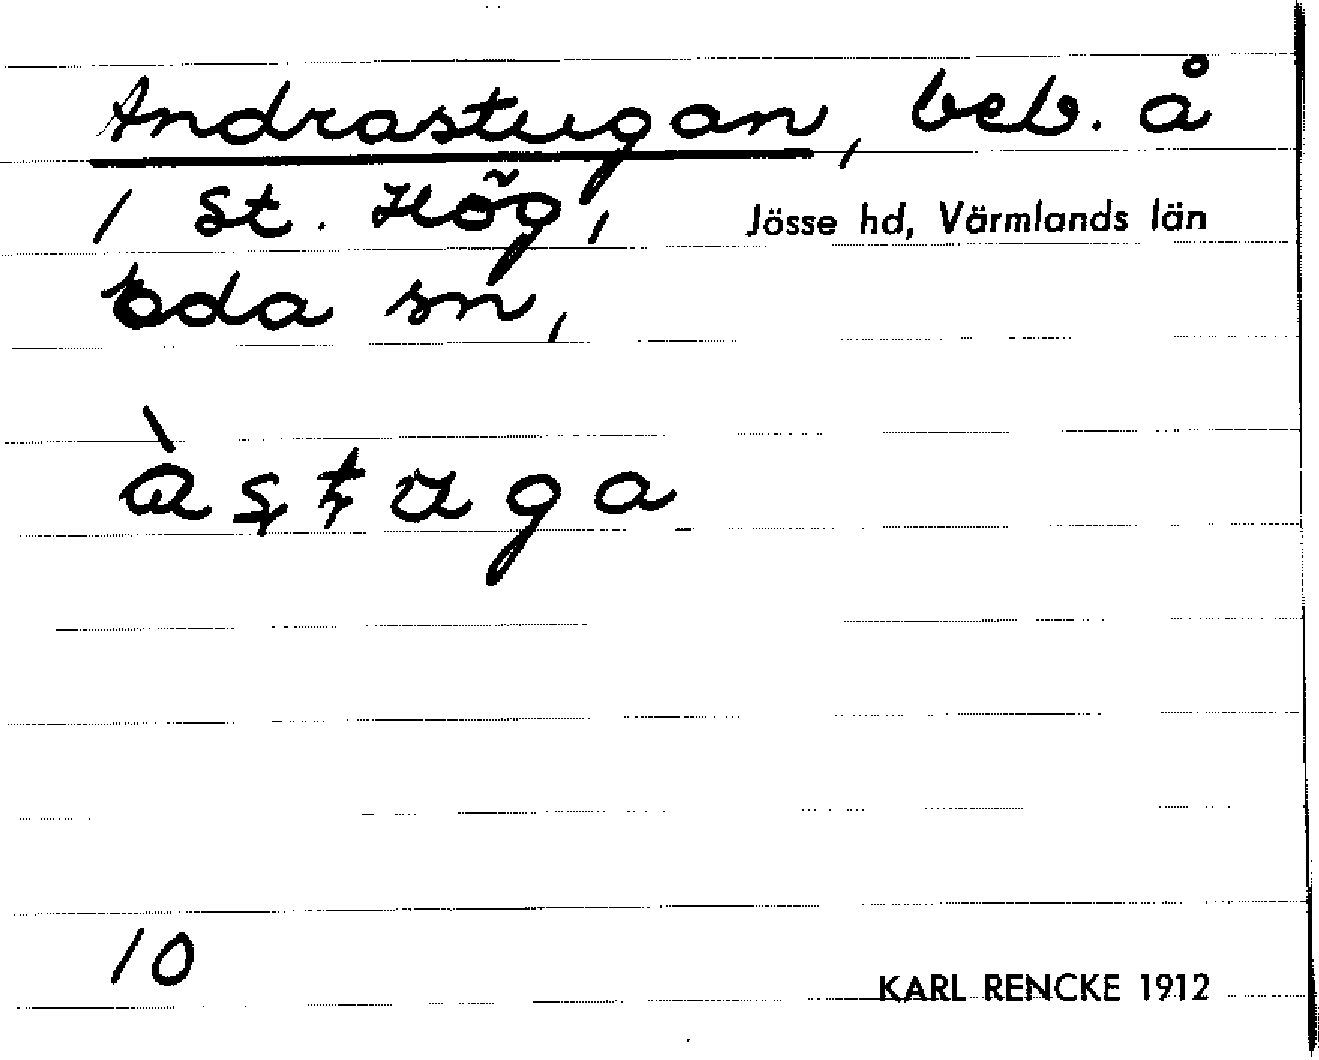 Andrastugan, beb. å
1 St. Hög, Jösse hd, Värmlands län
Eda sn,
àstuga
10
KARL RENCKE 1912